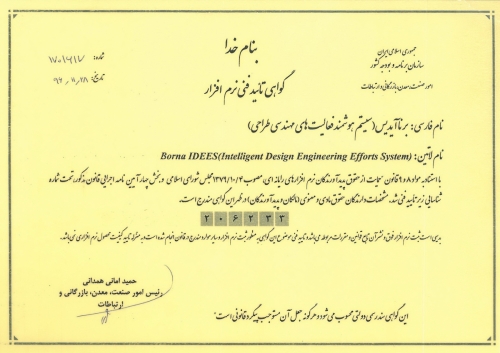 بنام خدا
جمهوری اسلامی ایران
سازمان برنامه و بودجه کشور
امور صنعت، معدن، بازرگانی و ارتباطات
شماره:
تاریخ:
گواهی تائید فنی نرم افزار
نام فارسی: برنا آیدیس (سیستم هوشمند فعالیت های مهندسی طراحی)
نام لاتین: Borna IDEES(Intelligent Design Engineering Efforts System)
با استناد مواد ۸ و ۹ قانون حمایت از حقوق پدیدآورندگان نرم افزارهای رایانه ای، مصوب ۱۳۷۹/۱۰/۴ مجلس شورای اسلامی و بخش چهار آیین نامه اجرایی قانون مذکور تحت شماره
شناسایی زیر تایید فنی شد. مشخصات دارندگان حقوق مادی و معنوی (مالکان و پدیدآورندگان) در ظهر این گواهی مندرج است.
۲۰۶۲۳۳
بدیهی است ثبت نرم افزار فوق و نشر آن تابع قوانین و مقررات مربوطه می باشد و تایید فنی موضوع این گواهی به منظور ثبت نرم افزار و سایر موارد مندرج در قانون انجام شده است و به منزله تایید کیفیت محصول نرم افزاری نمی باشد.
حمید امانی همدانی
رئیس امور صنعت، معدن، بازرگانی و
ارتباطات
این گواهی سند رسمی دولتی محسوب می شود و هرگونه جعل آن مستوجب پیگرد قانونی است.